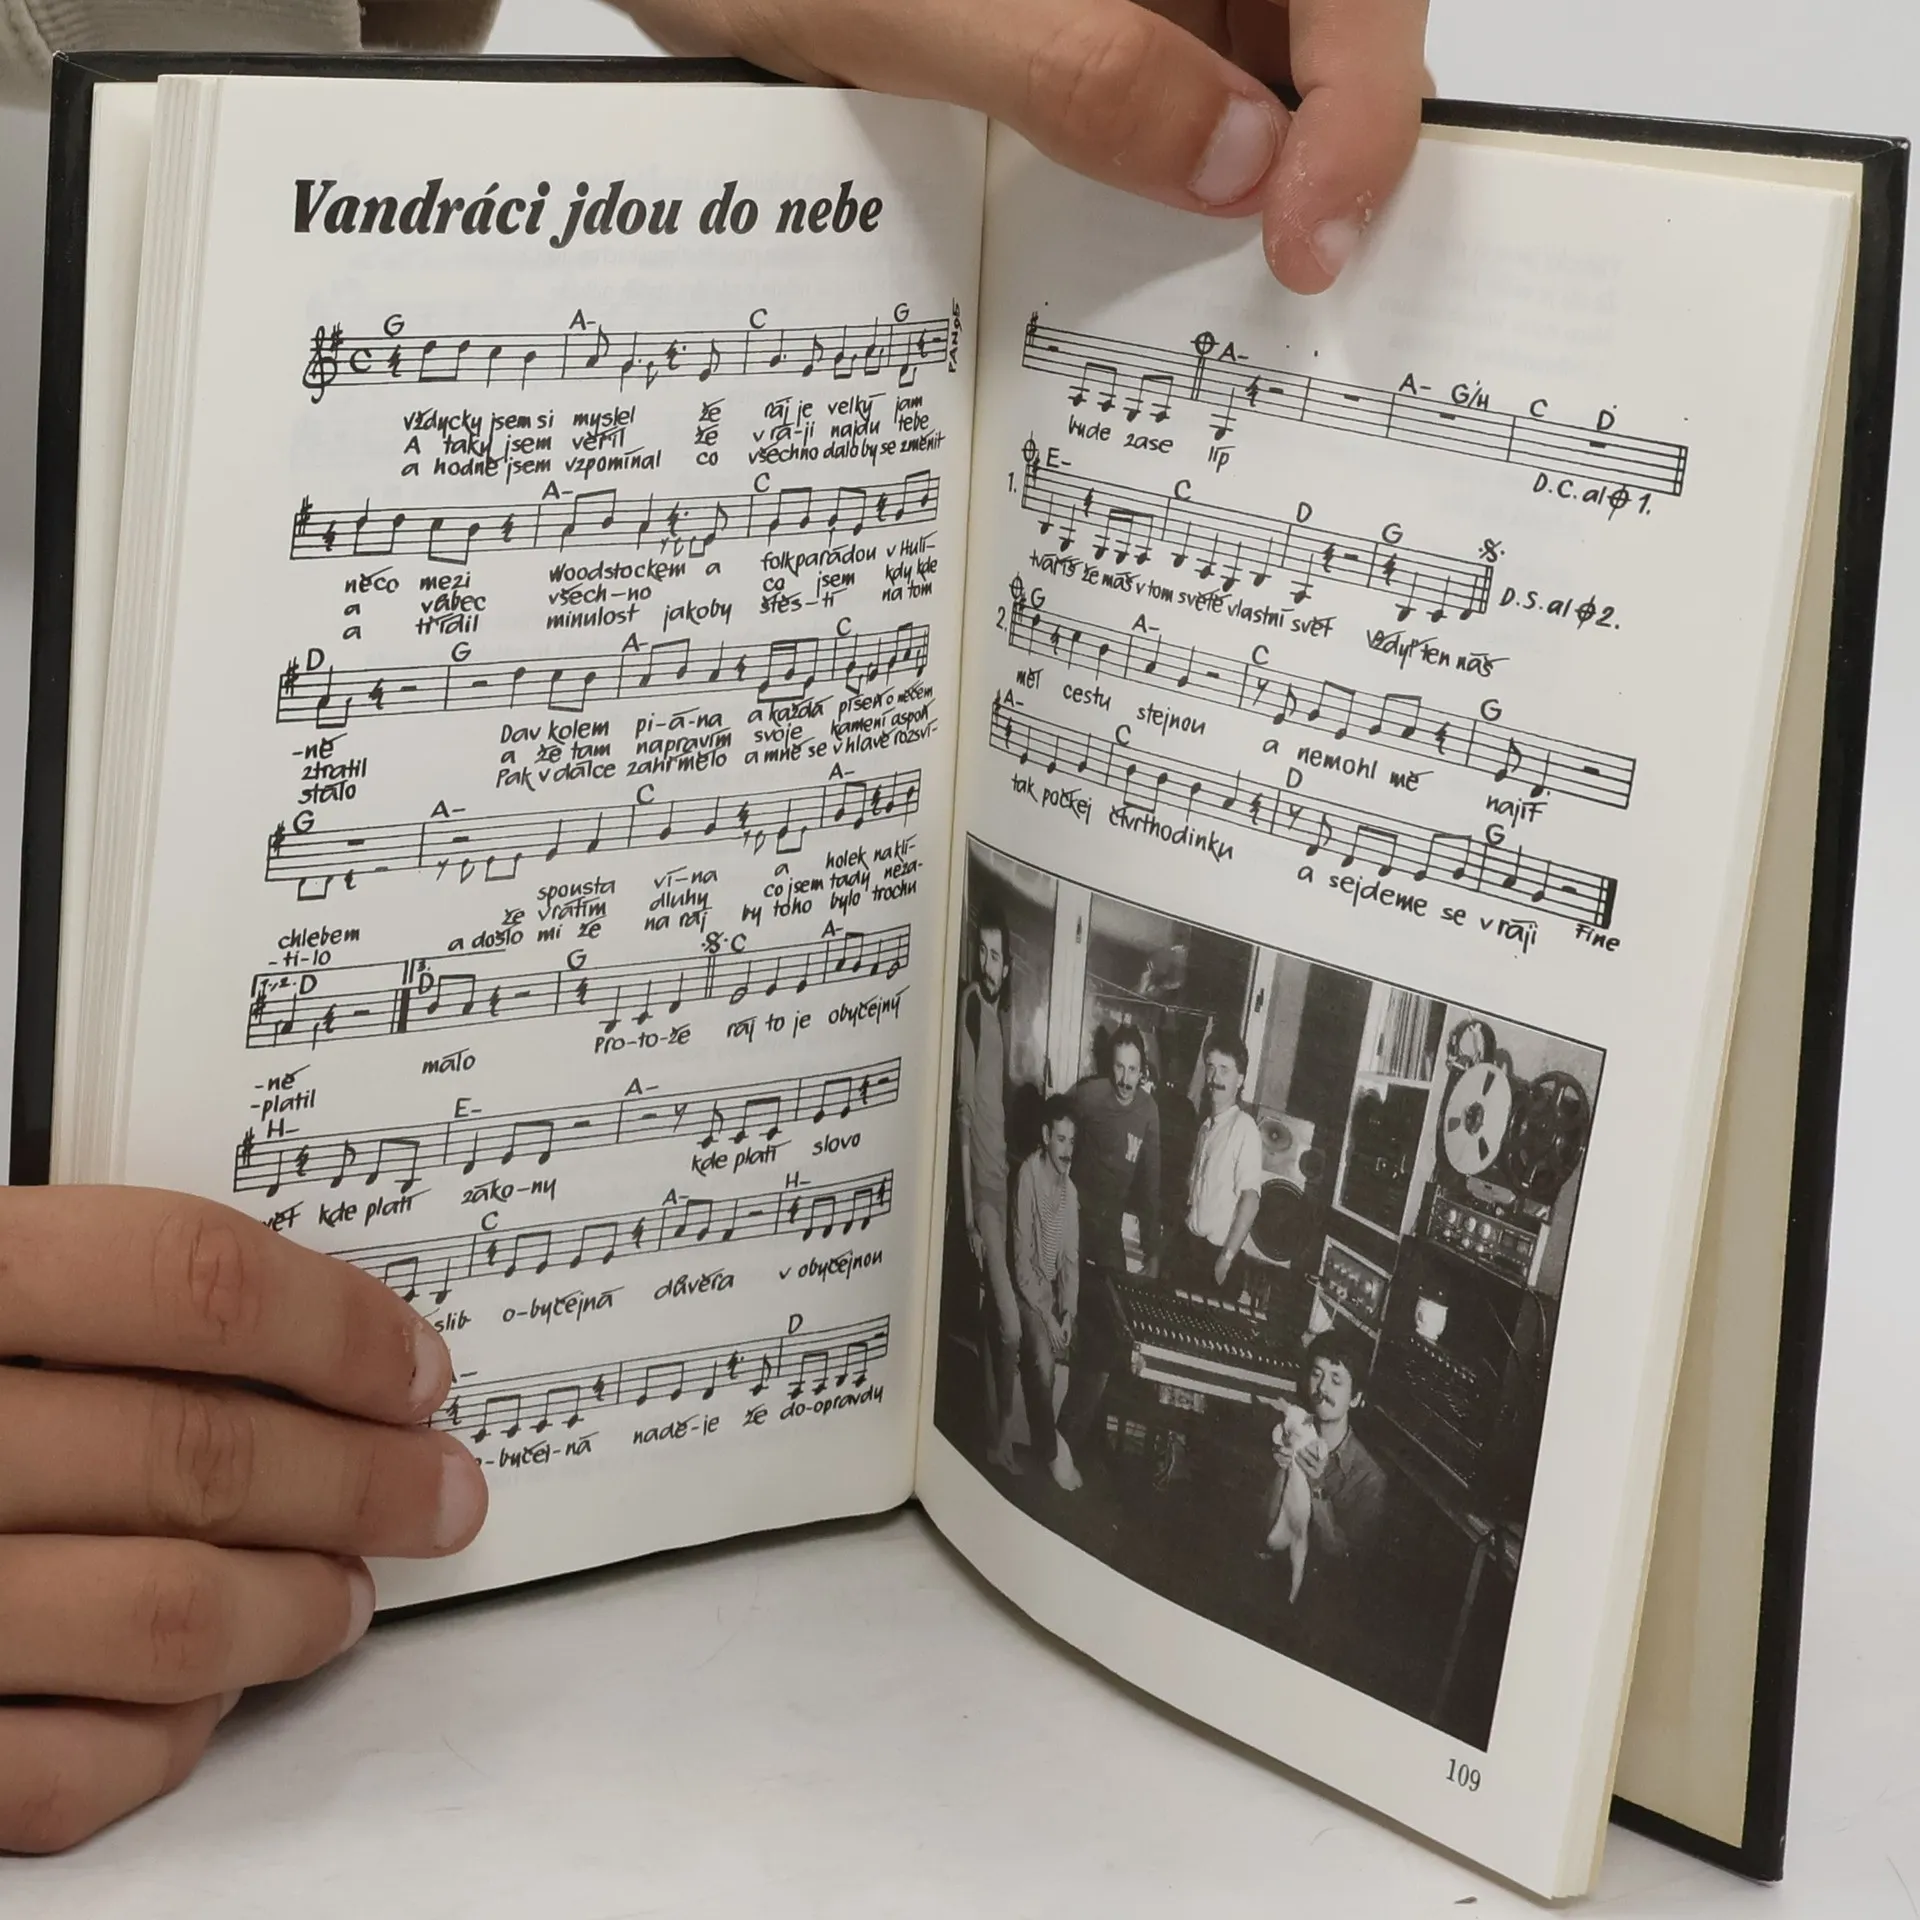 Vandráci jdou do nebe
G A- C G
vždycky jsem si myslel že ráj je velký jam
A taky jsem věřil že v rá-ji najdu tebe
a hodně jsem vzpomínal co všechno dalo by se změnit
A- C
něco mezi Woodstockem a folkparádou v Hulí-
a vůbec všech-no co jsem kdy kde
a tíţil minulost jakoby štěs-tí na tom
D G A- C
-ně Dav kolem pi-á-na a každá píseň o něčem
ztratil a že tam napravím svoje kamení aspoň
stálo Pak v dálce zahřmělo a mně se v hlavě rozsví-
G A- C A-
spousta ví-na a holek na klí-
chlebem že vrátím dluhy co jsem tady neza-
-ti-lo a došlo mi že na ráj by toho bylo trochu
1., 2. D 3. D G C A-
-ně málo Pro-to-že ráj to je obyčejný
-platil
H- E- A-
kde platí záko-ny kde platí slovo
C A- H-
slib o-byčejná důvěra v obyčejnou
D
-byčej-ná nadě-je že do-opravdy
A- A- G/H C D
bude zase líp
D.C. al 1.
1. E- C D G
tváříš že máš v tom světě vlastní svět Vždyť ten náš
D.S. al 2.
2. G A- C G
měl cestu stejnou a nemohl mě najít
A- C D G
tak počkej čtvrthodinku a sejdeme se v ráji
Fine
109